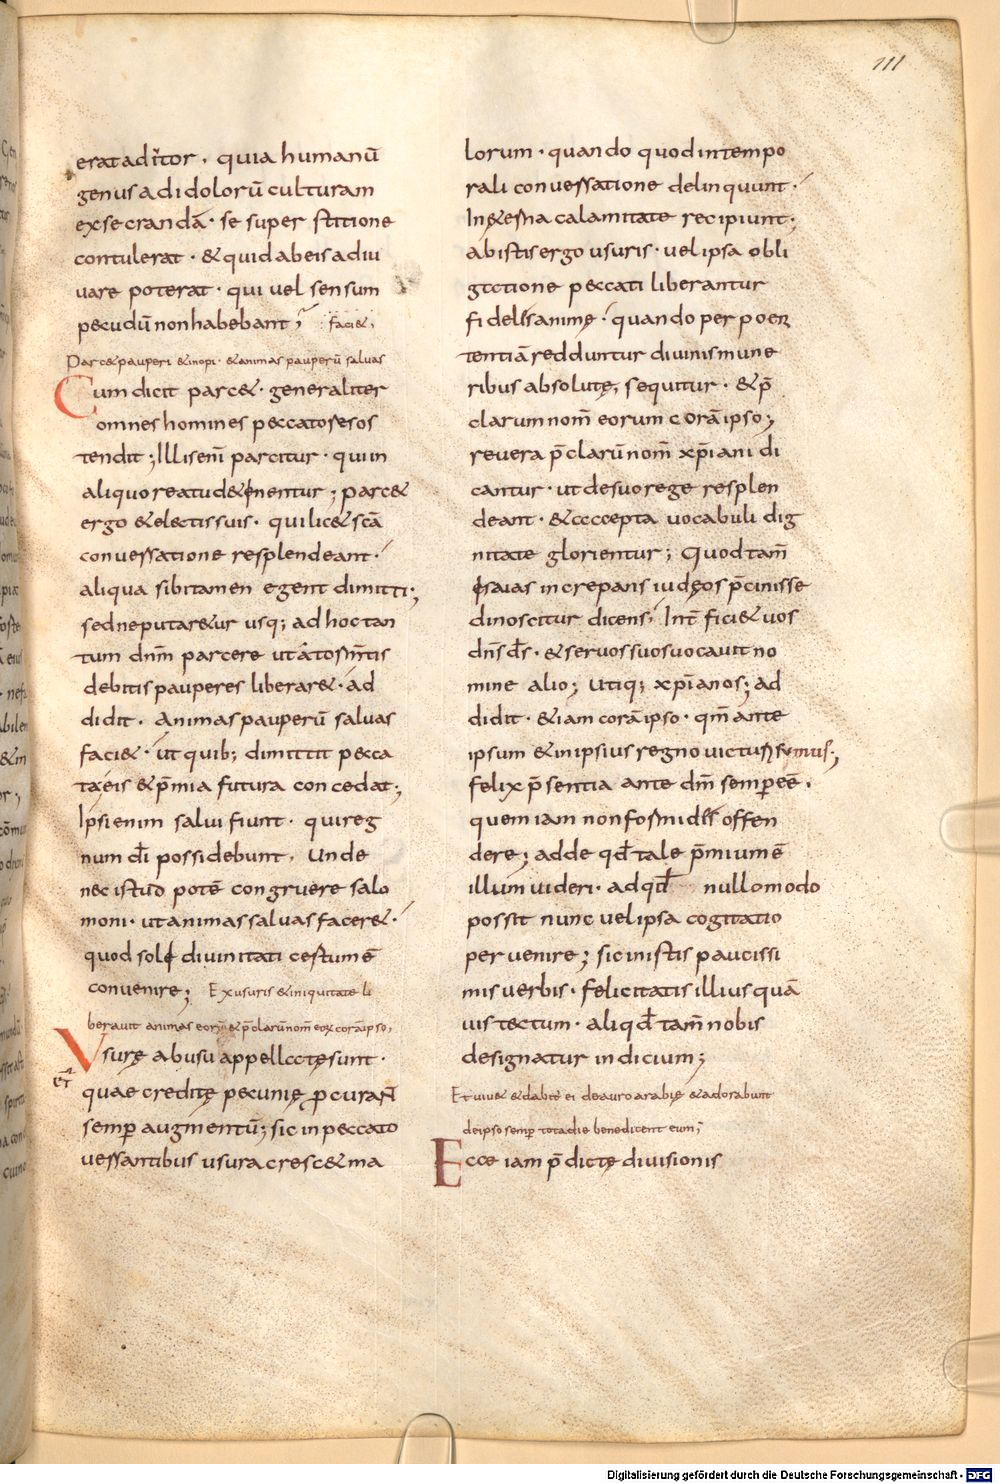 111
erat aditor · quia humanū
genus adi dolorū culturam
exsecrandā · se super stitione
contulerat · & quid ab eis adiu
vare poterat · qui vel sensum
pecudū non habebant; faci&;
Parc& pauperi & inopi · & animas pauperū salvas
Cum dicit parc& · generaliter
omnes homines peccatores os
tendit; Illis enī parcitur · qui in
aliquo reatu d&inentur; parc&
ergo & electis suis · qui lic& scā
conversatione resplendeant ·
aliqua sibi tamen egent dimitti;
sed ne putar&ur usq; ad hoc tan
tum dnm parcere ut a tormtis
debitis pauperes liberar& · ad
didit · Animas pauperū salvas
faci& · ut quib; dimittit pecca
ta eis & p̄mia futura concedat;
Ipsi enim salvi fiunt · qui reg
num dī possidebunt · Unde
nec istud potē congruere salo
moni · ut animas salvas facer& ·
quod sole divinitati certum ē
convenire; Ex usuris & iniquitate li
beravit animas eorū & p̄clarū nom̄ eoꝝ corā ipso;
Vsurę abusu appellatę sunt ·
quae creditę pecunię ꝓcurant
semp̄ augmentū; sic in peccato
versantibus usura cresc& ma
lorum · quando quod in tempo
rali conversatione delinquunt ·
In &erna calamitate recipiunt;
ab istis ergo usuris · vel ipsa obli
gatione peccati liberantur
fidelis animę · quando per poeni
tentiā redduntur divinis mune
ribus absolutę, sequitur · & p̄
clarum nom̄ eorum corā ipso;
revera p̄clarū nom̄ xp̄iani di
cantur · ut de suo rege resplen
deant · & accepta vocabuli dig
nitate glorientur; Quod tam̄
esaias increpans iudęos p̄cinisse
dinoscitur dicens, Int̄ fici& vos
dn̄s ds̄ · & servos suos vocavit no
mine alio; Utiq; xp̄ianos; ad
didit · & iam corā ipso · qm̄ ante
ipsum & in ipsius regno victuri sumus;
felix p̄sentia ante dm̄ semper eē ·
quem iam non formidas offen
dere; adde qd̄ tale p̄mium ē
illum videri · ad qd̄ nullo modo
possit nunc vel ipsa cogitatio
pervenire; sic in istis paucissi
mis verbis · felicitatis illius quā
vis tectum · aliqd̄ tam̄ nobis
designatur indicium;
Et viv& & dabit̄ ei de auro arabię & adorabunt
de ipso semp̄ tota die benedicent eum;
Ecce iam p̄dictę divisionis
Digitalisierung gefördert durch die Deutsche Forschungsgemeinschaft - DFG